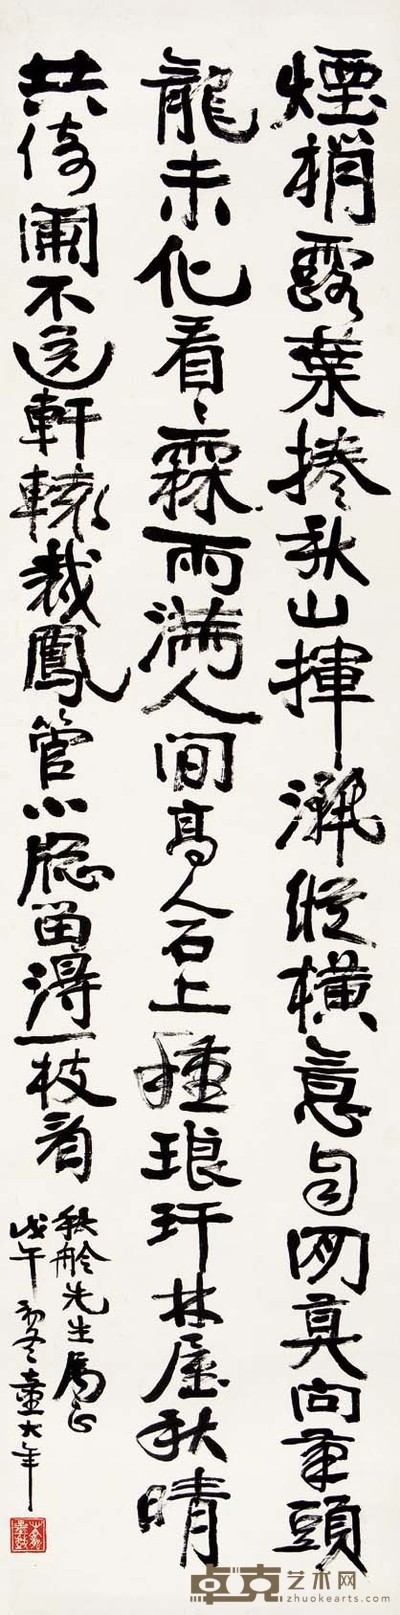 煙梢露葉捲秋山揮灑縱橫意自閑莫向頭
龍未化看〻霖雨滿人間高人石上種琅玕林屋秋晴
共倚闌不逐軒轅裁鳳管小牕留得一枝看
秋舲先生屬正
戊午初冬童大年
卓克艺术网
zhuokearts.com